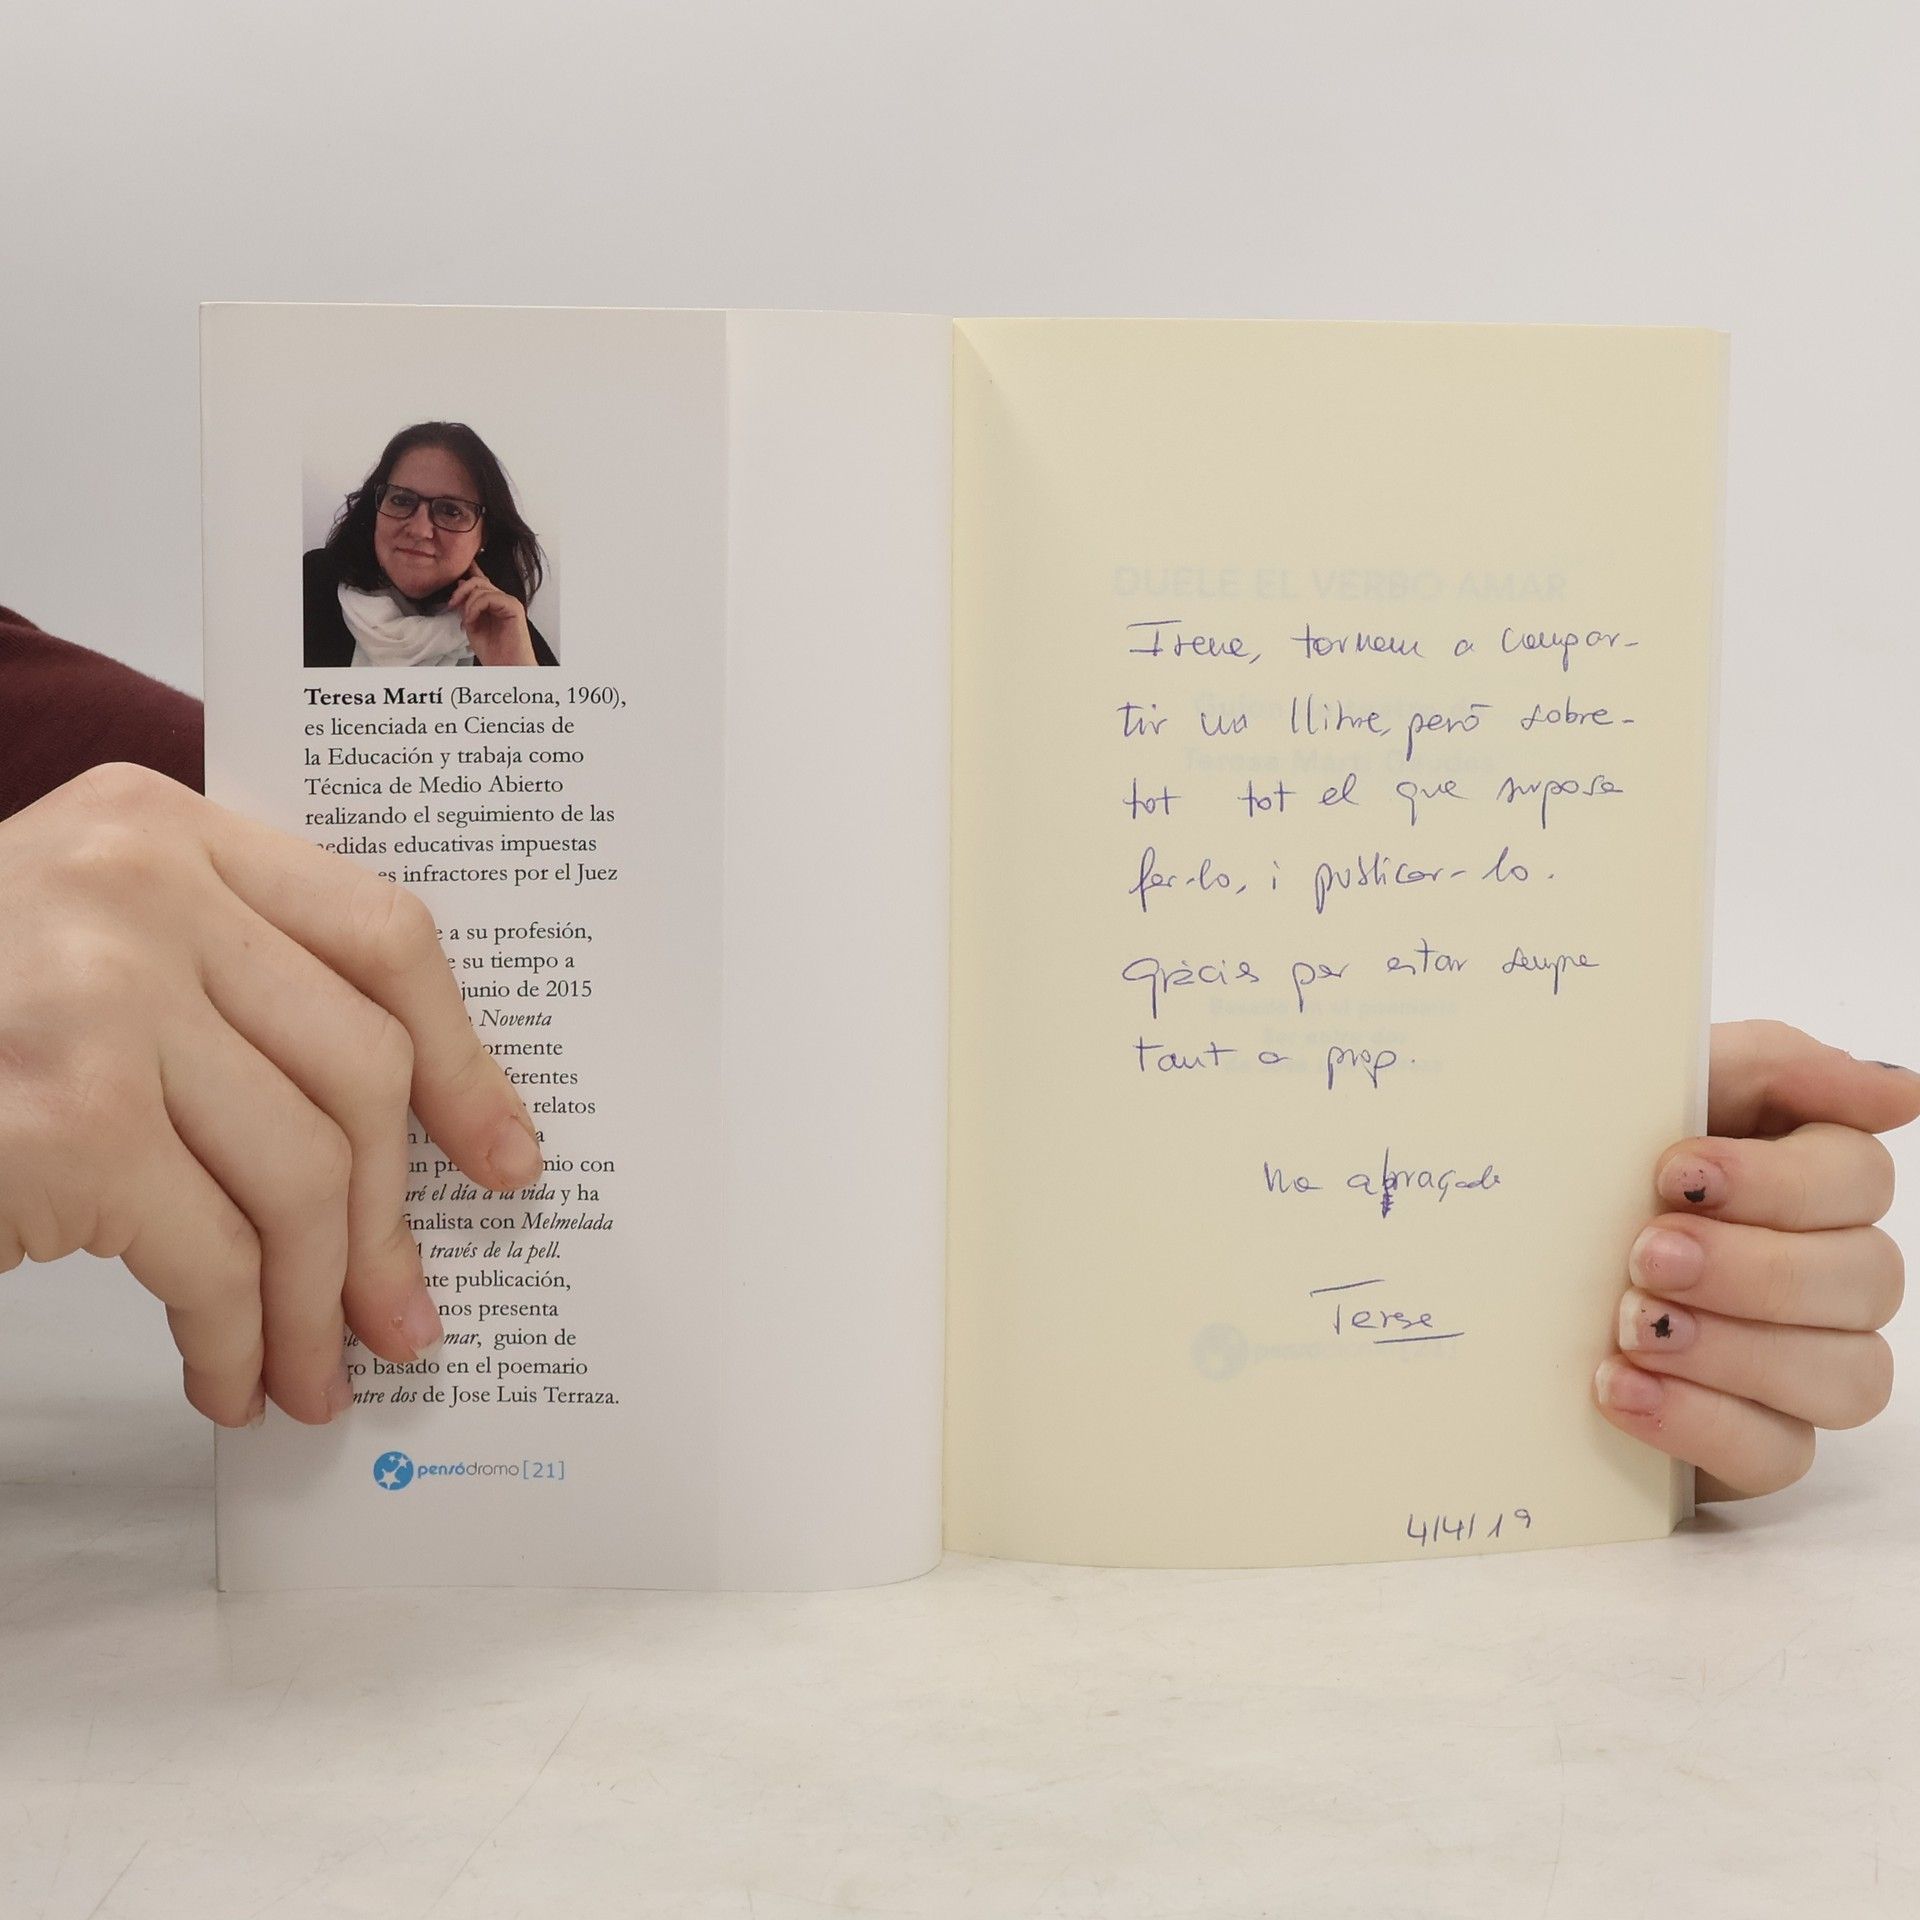 Teresa Martí (Barcelona, 1960),
es licenciada en Ciencias de
la Educación y trabaja como
Técnica de Medio Abierto
realizando el seguimiento de las
medidas educativas impuestas
infractores por el Juez
a su profesión,
su tiempo a
junio de 2015
Noventa
relatos
con
el día a la vida y ha
finalista con Melmelada
través de la pell.
publicación,
nos presenta
guion de
basado en el poemario
de Jose Luis Terraza.
pensódromo [21]
DUELE EL VERBO AMAR
Irene, tornem a compar-
tir un llibre, però sobre-
tot tot el que suposa
fer-lo, i publicar-lo.
Gràcies per estar sempre
tant a prop.
Una abraçada
Teresa
4/4/19